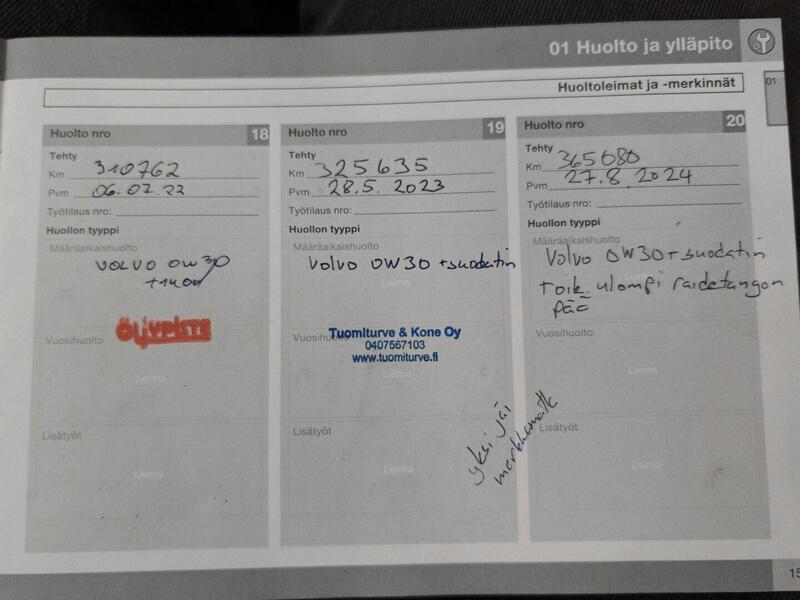 01 Huolto ja ylläpito
01
Huoltoleimat ja -merkinnät
Huolto nro 18
Tehty
Km 310762
Pvm 06.07.22
Työtilaus nro:
Huollon tyyppi
Määräaikaishuolto
VOLVO 0W30
ÖLJYPISTE
Vuosihuolto
Leima
Lisätyöt
Leima
Huolto nro 19
Tehty
Km 325635
Pvm 28.5. 2023
Työtilaus nro:
Huollon tyyppi
Määräaikaishuolto
Volvo 0W30 + suodatin
Leima
Vuosihuolto
Tuomiturve & Kone Oy
0407567103
www.tuomiturve.fi
Leima
Lisätyöt
Leima
yksi jäi
Huolto nro 20
Tehty
Km 365080
Pvm 27.8.2024
Työtilaus nro:
Huollon tyyppi
Määräaikaishuolto
Volvo 0W30 + suodatin
Leima
+oik. ulompi raidetangon
pää
Vuosihuolto
Leima
Lisätyöt
Leima
15